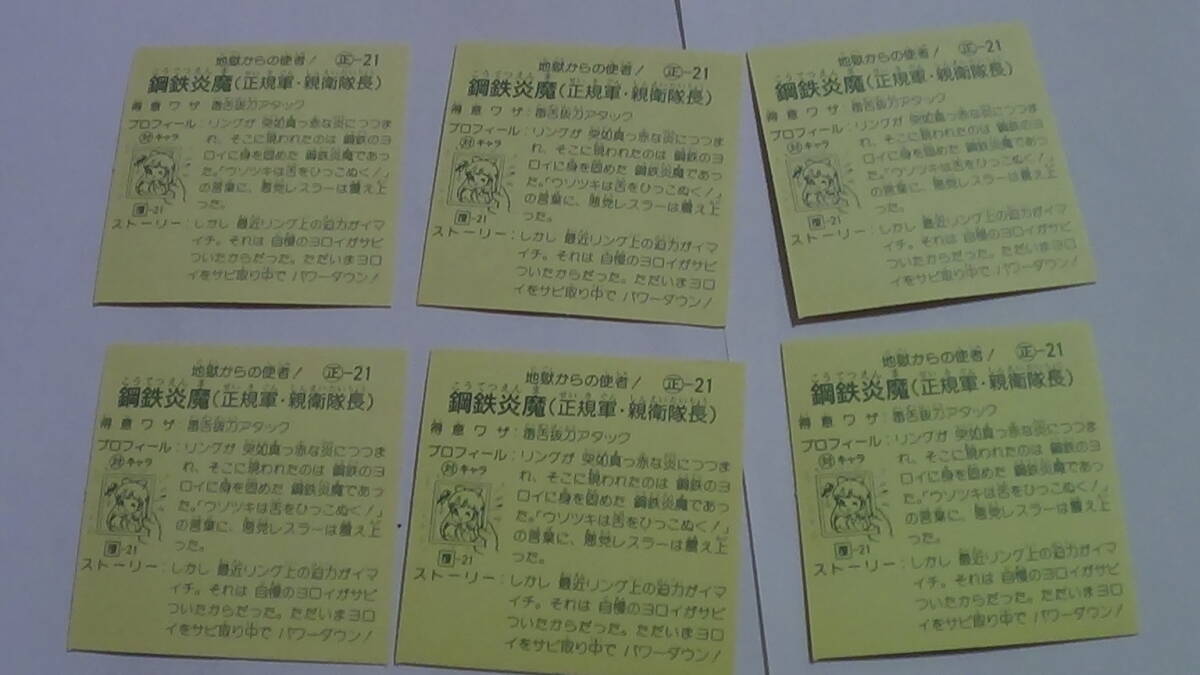 地獄からの使者! 正-21
鋼鉄炎魔(正規軍・親衛隊長)
得意ワザ:毒舌抜刀アタック
プロフィール:リングが 突如真っ赤な炎につつま
れ、そこに現われたのは 鋼鉄のヨ
ロイに身を固めた 鋼鉄炎魔であっ
た。「ウソツキは舌をひっこぬく!」
の言葉に、悪党レスラーは震え上
った。
対キャラ
-21
ストーリー:しかし 最近リング上の迫力がイマ
イチ。それは 自慢のヨロイがサビ
ついたからだった。ただいまヨロ
イをサビ取り中で パワーダウン!
地獄からの使者! 正-21
鋼鉄炎魔(正規軍・親衛隊長)
得意ワザ:毒舌抜刀アタック
プロフィール:リングが 突如真っ赤な炎につつま
れ、そこに現われたのは 鋼鉄のヨ
ロイに身を固めた 鋼鉄炎魔であっ
た。「ウソツキは舌をひっこぬく!」
の言葉に、悪党レスラーは震え上
った。
対キャラ
-21
ストーリー:しかし 最近リング上の迫力がイマ
イチ。それは 自慢のヨロイがサビ
ついたからだった。ただいまヨロ
イをサビ取り中で パワーダウン!
地獄からの使者! 正-21
鋼鉄炎魔(正規軍・親衛隊長)
得意ワザ:毒舌抜刀アタック
プロフィール:リングが 突如真っ赤な炎につつま
れ、そこに現われたのは 鋼鉄のヨ
ロイに身を固めた 鋼鉄炎魔であっ
た。「ウソツキは舌をひっこぬく!」
の言葉に、悪党レスラーは震え上
った。
対キャラ
-21
ストーリー:しかし 最近リング上の迫力がイマ
イチ。それは 自慢のヨロイがサビ
ついたからだった。ただいまヨロ
イをサビ取り中で パワーダウン!
地獄からの使者! 正-21
鋼鉄炎魔(正規軍・親衛隊長)
得意ワザ:毒舌抜刀アタック
プロフィール:リングが 突如真っ赤な炎につつま
れ、そこに現われたのは 鋼鉄のヨ
ロイに身を固めた 鋼鉄炎魔であっ
た。「ウソツキは舌をひっこぬく!」
の言葉に、悪党レスラーは震え上
った。
対キャラ
-21
ストーリー:しかし 最近リング上の迫力がイマ
イチ。それは 自慢のヨロイがサビ
ついたからだった。ただいまヨロ
イをサビ取り中で パワーダウン!
地獄からの使者! 正-21
鋼鉄炎魔(正規軍・親衛隊長)
得意ワザ:毒舌抜刀アタック
プロフィール:リングが 突如真っ赤な炎につつま
れ、そこに現われたのは 鋼鉄のヨ
ロイに身を固めた 鋼鉄炎魔であっ
た。「ウソツキは舌をひっこぬく!」
の言葉に、悪党レスラーは震え上
った。
対キャラ
-21
ストーリー:しかし 最近リング上の迫力がイマ
イチ。それは 自慢のヨロイがサビ
ついたからだった。ただいまヨロ
イをサビ取り中で パワーダウン!
地獄からの使者! 正-21
鋼鉄炎魔(正規軍・親衛隊長)
得意ワザ:毒舌抜刀アタック
プロフィール:リングが 突如真っ赤な炎につつま
れ、そこに現われたのは 鋼鉄のヨ
ロイに身を固めた 鋼鉄炎魔であっ
た。「ウソツキは舌をひっこぬく!」
の言葉に、悪党レスラーは震え上
った。
対キャラ
-21
ストーリー:しかし 最近リング上の迫力がイマ
イチ。それは 自慢のヨロイがサビ
ついたからだった。ただいまヨロ
イをサビ取り中で パワーダウン!